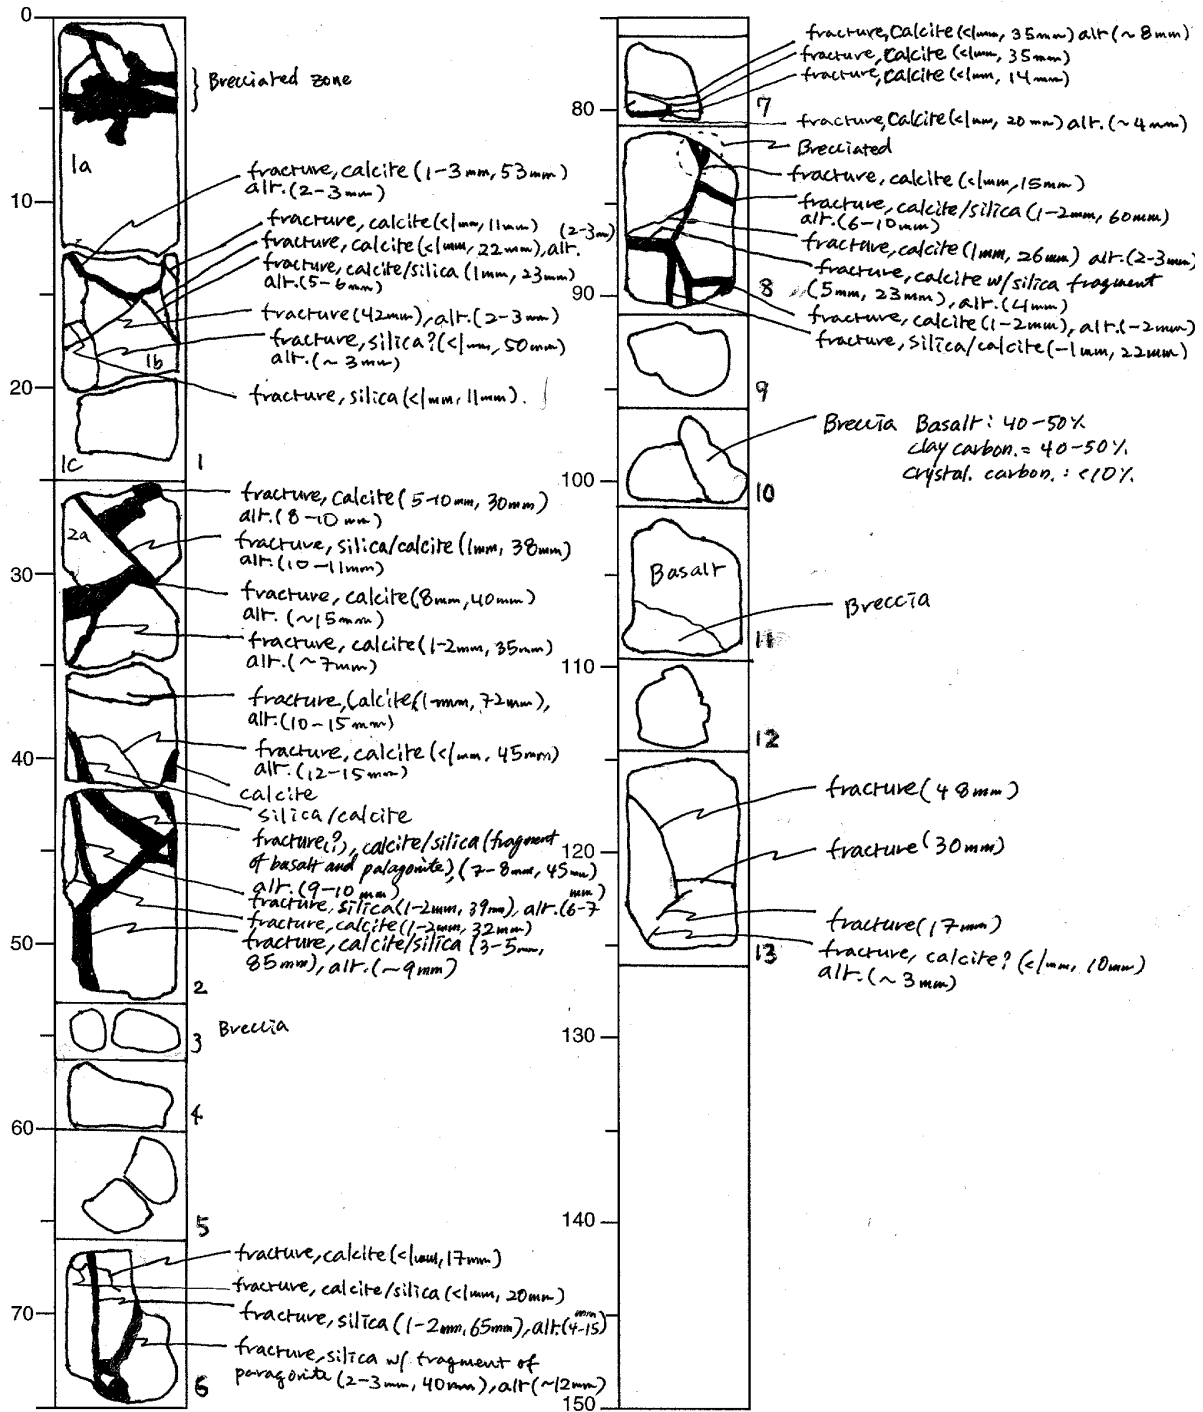 0
Brecciated zone
1a
fracture, calcite (1-3mm, 53mm)
alt. (2-3mm)
10
fracture, calcite (<1mm, 11mm) (2-3m)
fracture, calcite (<1mm, 22mm), alt.
fracture, calcite/silica (1mm, 23mm)
alt. (5-6mm)
fracture (42mm), alt. (2-3mm)
fracture, silica? (<1mm, 50mm)
alt. (~3mm)
1b
20
fracture, silica (<1mm, 11mm).
1c
1
fracture, calcite (5-10mm, 30mm)
alt. (8-10mm)
2a
fracture, silica/calcite (1mm, 38mm)
alt. (10-11mm)
30
fracture, calcite (8mm, 40mm)
alt. (~15mm)
fracture, calcite (1-2mm, 35mm)
alt. (~7mm)
fracture, calcite (1-mm, 72mm),
alt. (10-15mm)
40
fracture, calcite (<1mm, 45mm)
alt. (12-15mm)
calcite
silica/calcite
fracture(?), calcite/silica (fragment
of basalt and palagonite), (7-8mm, 45mm)
alt. (9-10mm) mm)
fracture, silica (1-2mm, 39mm), alt. (6-7
fracture, calcite (1-2mm, 32mm)
50
fracture, calcite/silica (3-5mm,
85mm), alt. (~9mm)
2
3 Breccia
4
60
5
fracture, calcite (<1mm, 17mm)
fracture, calcite/silica (<1mm, 20mm)
70
mm
fracture, silica (1-2mm, 65mm), alt. (4-15)
fracture, silica w/ fragment of
paragonite (2-3mm, 40mm), alt (~12mm)
6
fracture, calcite (<1mm, 35mm) alt (~8mm)
fracture, calcite (<1mm, 35mm)
fracture, calcite (<1mm, 14mm)
7
80
fracture, calcite (<1mm, 20mm) alt. (~4mm)
Brecciated
fracture, calcite (<1mm, 15mm)
fracture, calcite/silica (1-2mm, 60mm)
alt. (6-10mm)
fracture, calcite (1mm, 26mm) alt. (2-3mm)
fracture, calcite w/silica fragment
(5mm, 23mm), alt. (4mm)
8
90
fracture, calcite (1-2mm), alt. (-2mm)
fracture, silica/calcite (-1mm, 22mm)
9
Breccia Basalt: 40-50%
clay carbon. = 40-50%
crystal. carbon. : <10%
10
100
Basalt
Breccia
11
110
12
fracture (48mm)
120
fracture (30mm)
fracture (17mm)
fracture, calcite? (<1mm, 10mm)
alt. (~3mm)
13
130
140
150